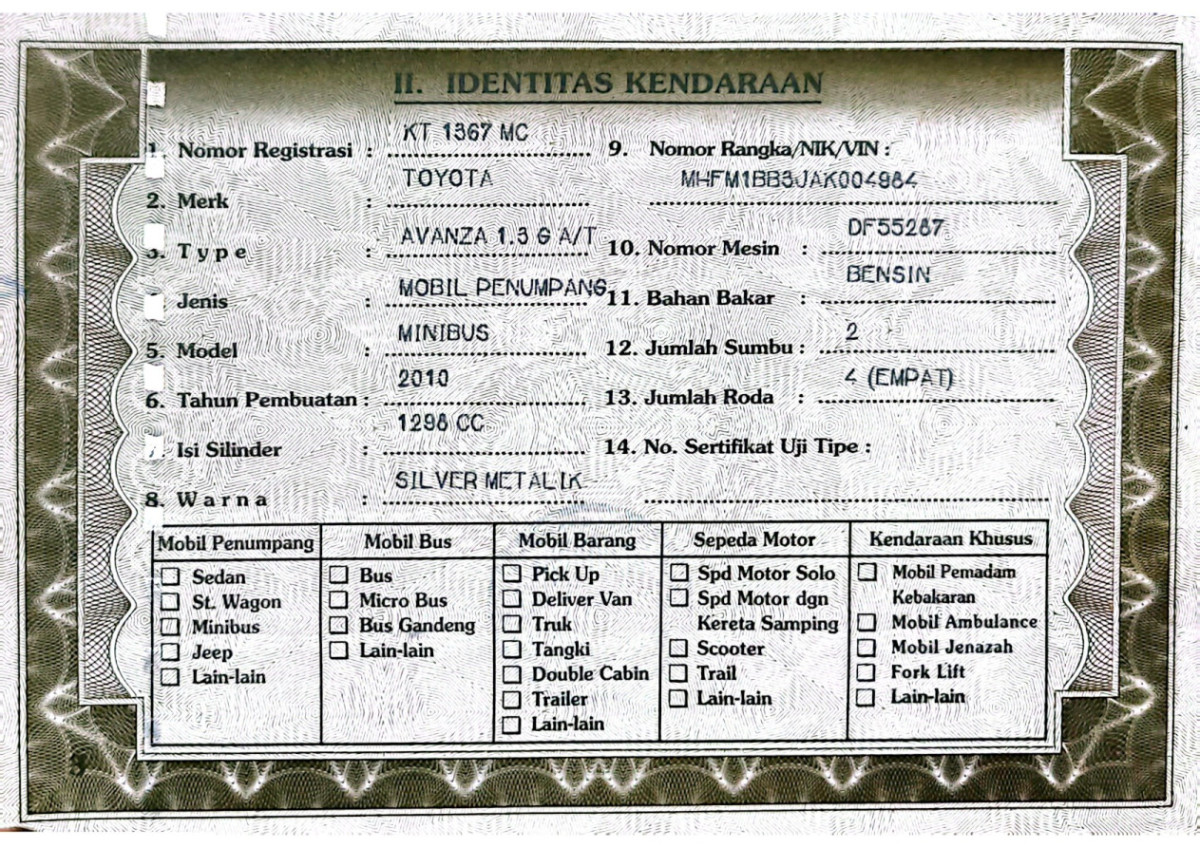 II. IDENTITAS KENDARAAN
1. Nomor Registrasi : KT 1367 MC
2. Merk : TOYOTA
3. Type : AVANZA 1.3 G A/T
Jenis : MOBIL PENUMPANG
5. Model : MINIBUS
6. Tahun Pembuatan : 2010
7. Isi Silinder : 1298 CC
8. Warna : SILVER METALIK
9. Nomor Rangka/NIK/VIN :
MHFM1BB3JAK004984
10. Nomor Mesin : DF55287
11. Bahan Bakar : BENSIN
12. Jumlah Sumbu : 2
13. Jumlah Roda : 4 (EMPAT)
14. No. Sertifikat Uji Tipe :
Mobil Penumpang
Sedan
St. Wagon
Minibus
Jeep
Lain-lain
Mobil Bus
Bus
Micro Bus
Bus Gandeng
Lain-lain
Mobil Barang
Pick Up
Deliver Van
Truk
Tangki
Double Cabin
Trailer
Lain-lain
Sepeda Motor
Spd Motor Solo
Spd Motor dgn
Kereta Samping
Scooter
Trail
Lain-lain
Kendaraan Khusus
Mobil Pemadam
Kebakaran
Mobil Ambulance
Mobil Jenazah
Fork Lift
Lain-lain